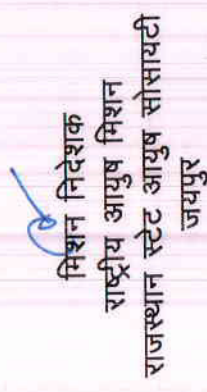 मिशन निदेशक
राष्ट्रीय आयुष मिशन
राजस्थान स्टेट आयुष सोसायटी
जयपुर